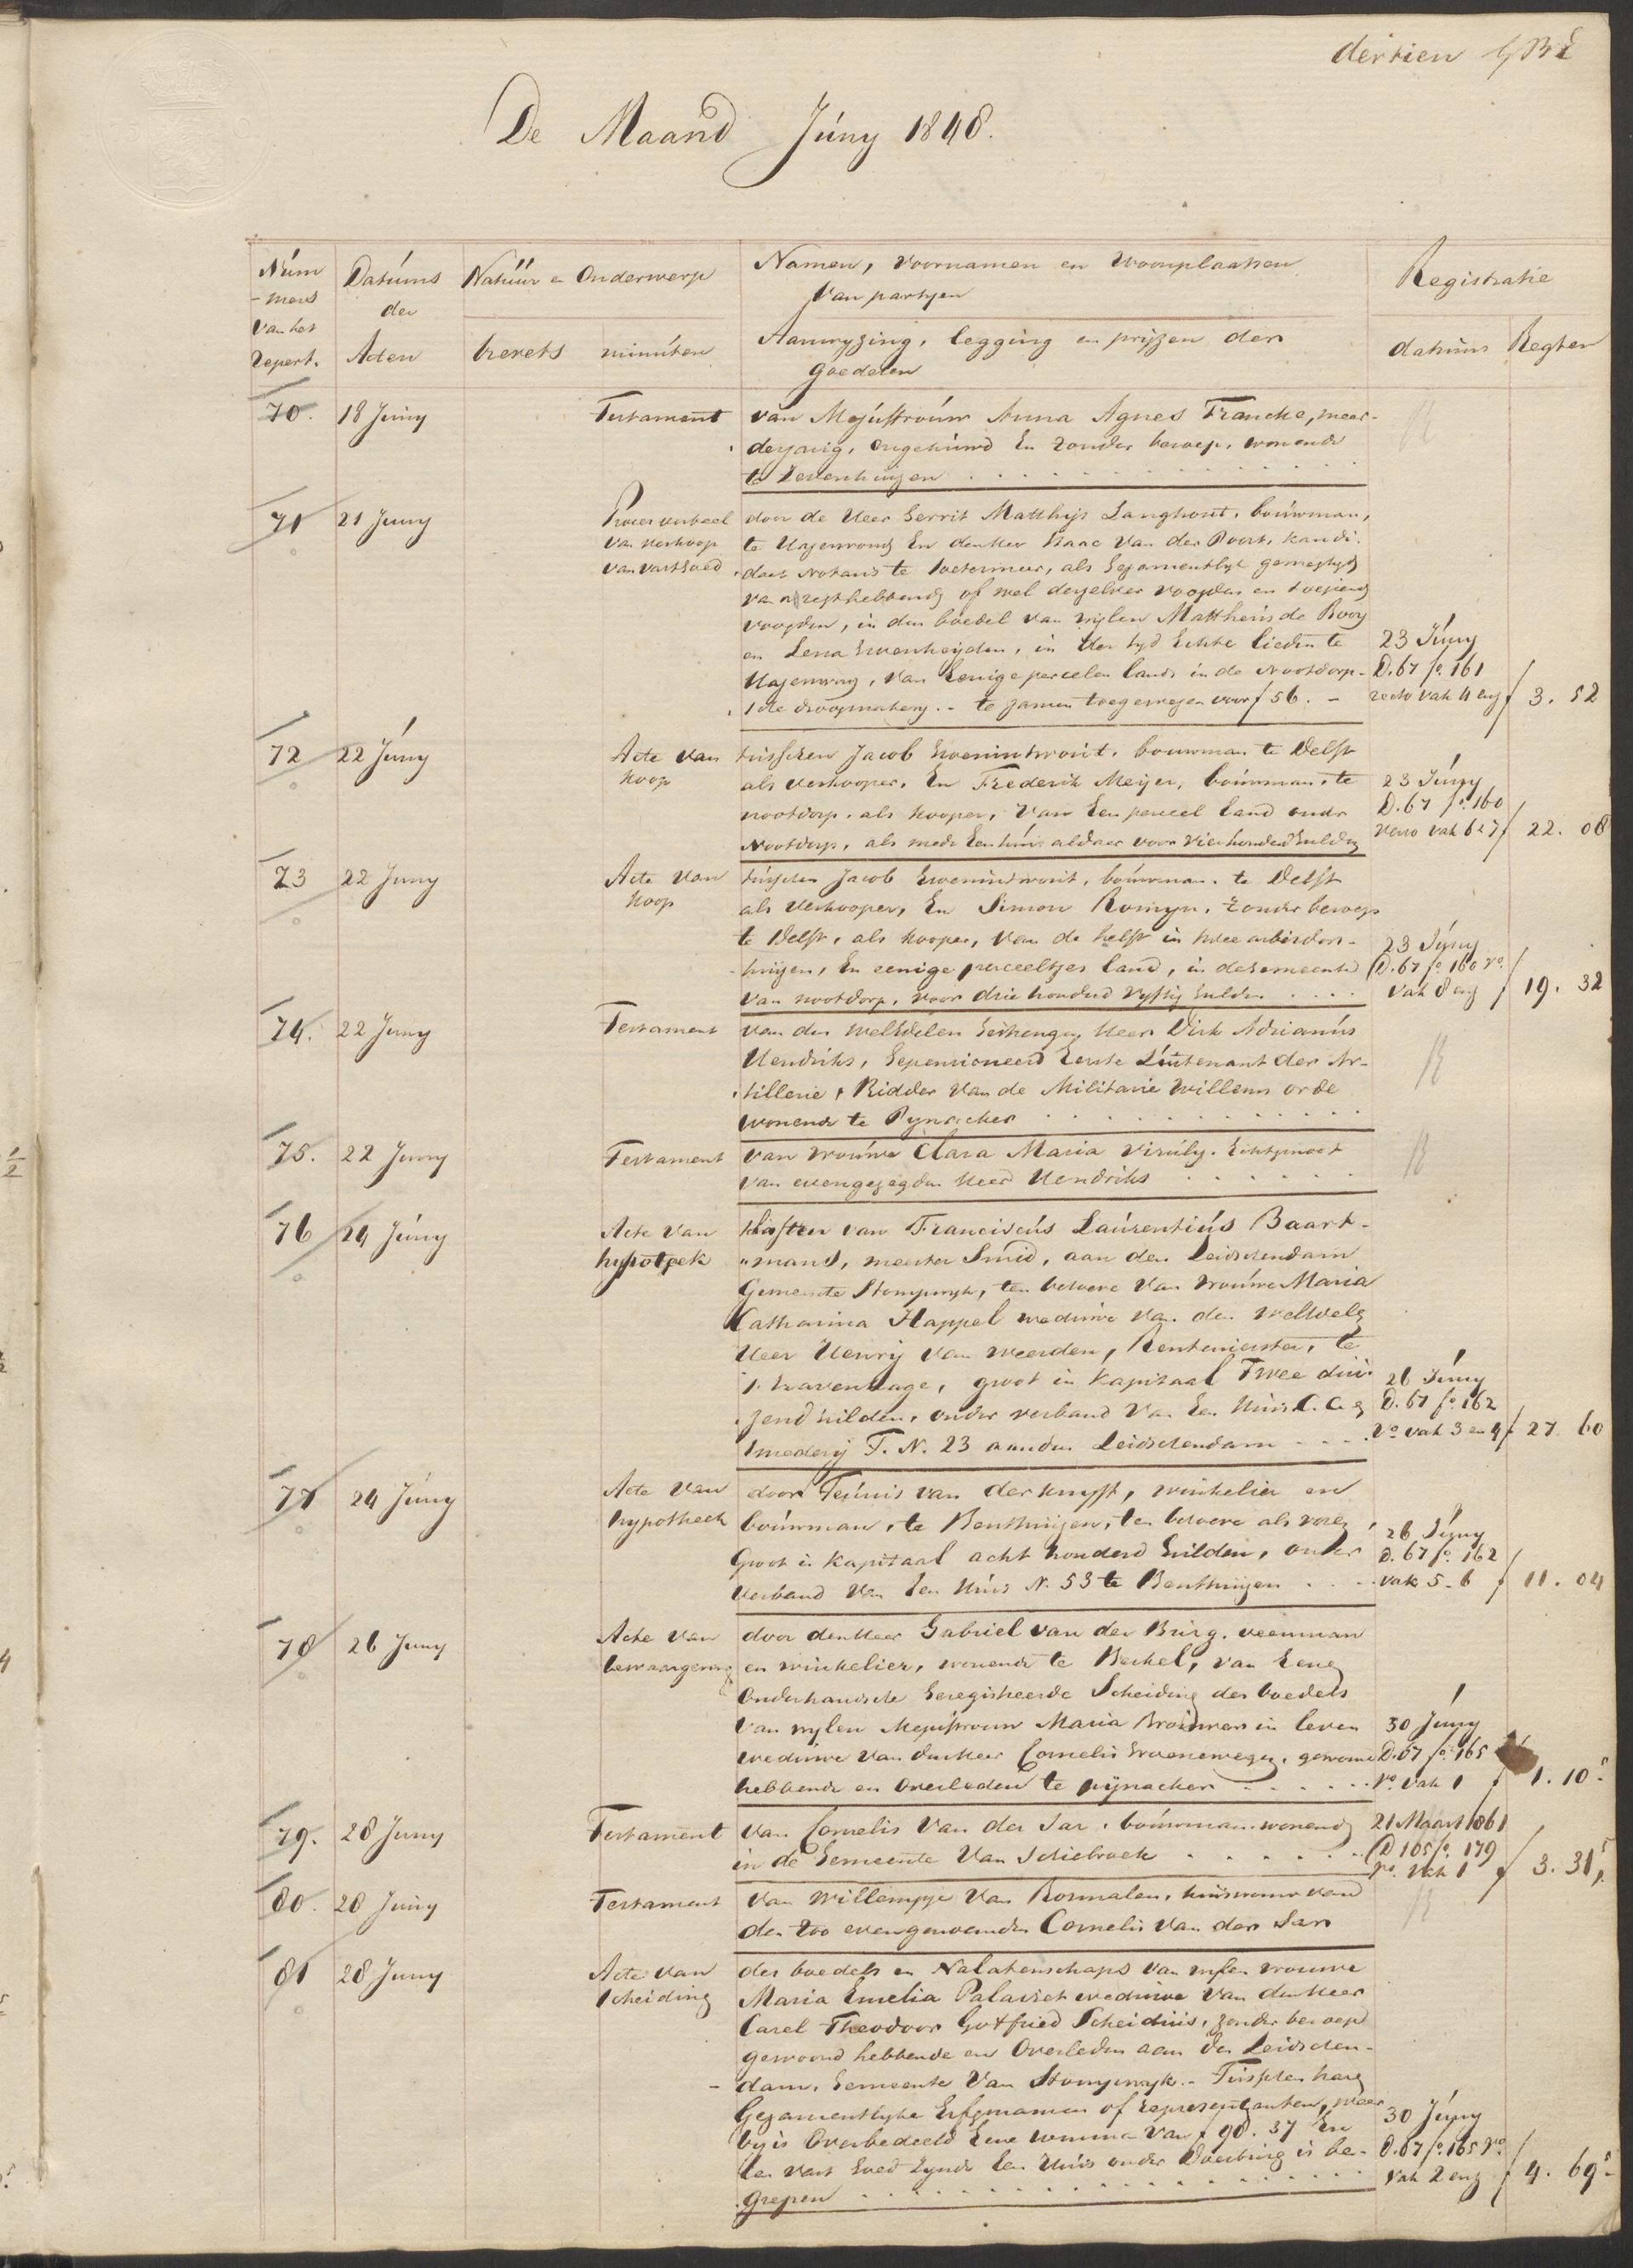 dertien
De Maand Júny 1848.
Núm
-mers
van het
repert.
Datúms
der
Acten
Natúúr en Onderwerp
brevets
minúten
Namen, Voornamen en Woonplaatsen
van partyen
Aanwyzing, legging en prijzen der
goederen
Registratie
datúms
Regten
70. 18 Júny Testament van Mejúffroúw Anna Agnes Francke, meer-
derjarig, ongehúwd En zonder beroep, wonende
te Zevenhuizen
71 21 Juny Proces verbaal door de Heer Gerrit Matthijs Langhout, boúwman,
van verkoop te Hazerswoude En den Heer Isaac van der Poort, kandi-
van vastgoed daat Notaris te Zoetermeer, als gezamentlyk gemagtigd
van regthebbende of wel derzelver voogden en toeziend
voogden, in den boedel van wijlen Mattheús de Rooy
en Lena Groenheyden, in der tyd Echte lieden te 23 Júny
Hazerswoude, van Eenige perceelen lands in de Nootdorp- D. 67 fo. 161
sche droogmakery. - te zamen toegewezen voor f 56. - recto vak 4 env f 3. 52
72 22 Júny Acte van tusschen Jacob Groenintwout, bouwman te Delft
koop als verkooper, En Frederik Meijer, boúwman, te 23 Júny
nootdorp, als kooper, van Een perceel land onder D. 67 fo. 160
Nootdorp, als mede Een húis aldaar voor vierhonderd Gulden verso vak 6 e 7 f 22. 08
73 22 Juny Acte van tússchen Jacob Groenintwout, boúwman, te Delft
koop als Verkooper, En Simon Romyn, zonder beroep
te Delft, als kooper, van de helft in twee arbeiders- 23 Júny
huijzen, En eenige perceeltjes land, in de Gemeente D. 67 fo. 160 vo.
van nootdorp, voor drie honderd vyftig Gulden vak 8 env f 19. 32
74. 22 Juny Testament van den WelEdelen Gestrengen Heer Dirk Adrianús
Hendriks, Gepensioneerd Eerste Lúitenant der Ar-
tillerie, Ridder van de Militaire Willems orde
wonende te Pynacker
75. 22 Juny Testament van vroúwe Clara Maria Virúly, Echtgenoot
van evengezegden Heer Hendriks
76 24 Júny Acte van van Franciscús Laúrentiús Baart-
hypotheek "mans, meester Smid, aan den Leidschendam
Gemeente Stompwyk, ten behoeve van vroúwe Maria
Catharina Happel weduwe van den WelEdele
Heer Henry van Weerden, Rentenierster, te
's Gravenhage, groot in kapitaal Twee dúi- 26 Júny
zend Gúlden, onder verband van Een Húis C. a. en D. 67 fo. 162
smederij T. N. 23 aan den Leidschendam vo vak 3 en 4 f 27 60
77 24 Júny Acte van door Teúnis van der knyff, winkelier en
hypotheek boúwman, te Benthuijzen, ten behoeve als voren, 26 Júny
Groot in kapitaal acht honderd Gúlden, onder D. 67 fo. 162
verband van Een Húis N. 53 te Benthuijzen vak 5 - 6 f 11. 04
78 26 Juny Acte van door den Heer Gabriel van der Búrg, veenman
bewaargeving en winkelier, wonende te Berkel, van Eene
onderhandsche Geregistreerde Scheiding des boedels
van wylen Mejúfvrouw Maria in leven 30 Júny
weduwe van den Heer Cornelis Groenewegen, gewoond D. 67 fo. 165
hebbende en overleden te pijnacker vo. vak 1 f 1. 10 5
79. 28 Juny Testament van Cornelis van der Sar, boúwman wonend 21 Maart 1861
in de Gemeente van Schiebroek D 105 fo. 179
vo. vak 1 f 3. 31 5
80. 28 Júny Testament van Willempje van Rosmalen, húisvroúw van
den zoo evengenoemden Cornelis van der Sar
81 28 Juny Acte van des boedels en Nalatenschaps van wylen vrouwe
scheiding Maria Emelia Palairet weduwe van den Heer
Carel Theodoor Gotfried Scheidiús, zonder beroep
gewoond hebbende en Overleden aan den Leidschen-
dam, Gemeente van Stompwyk. - Tússchen hare
Gezamentlyke Erfgenamen of representanten, waar 30 Júny
by is overbedeeld Eene somma van f 90. 37 En D. 67 fo. 165 vo
Een vast Goed zynde Een Húis onder Voorburg is be- vak 2 env f 4. 69 5
grepen